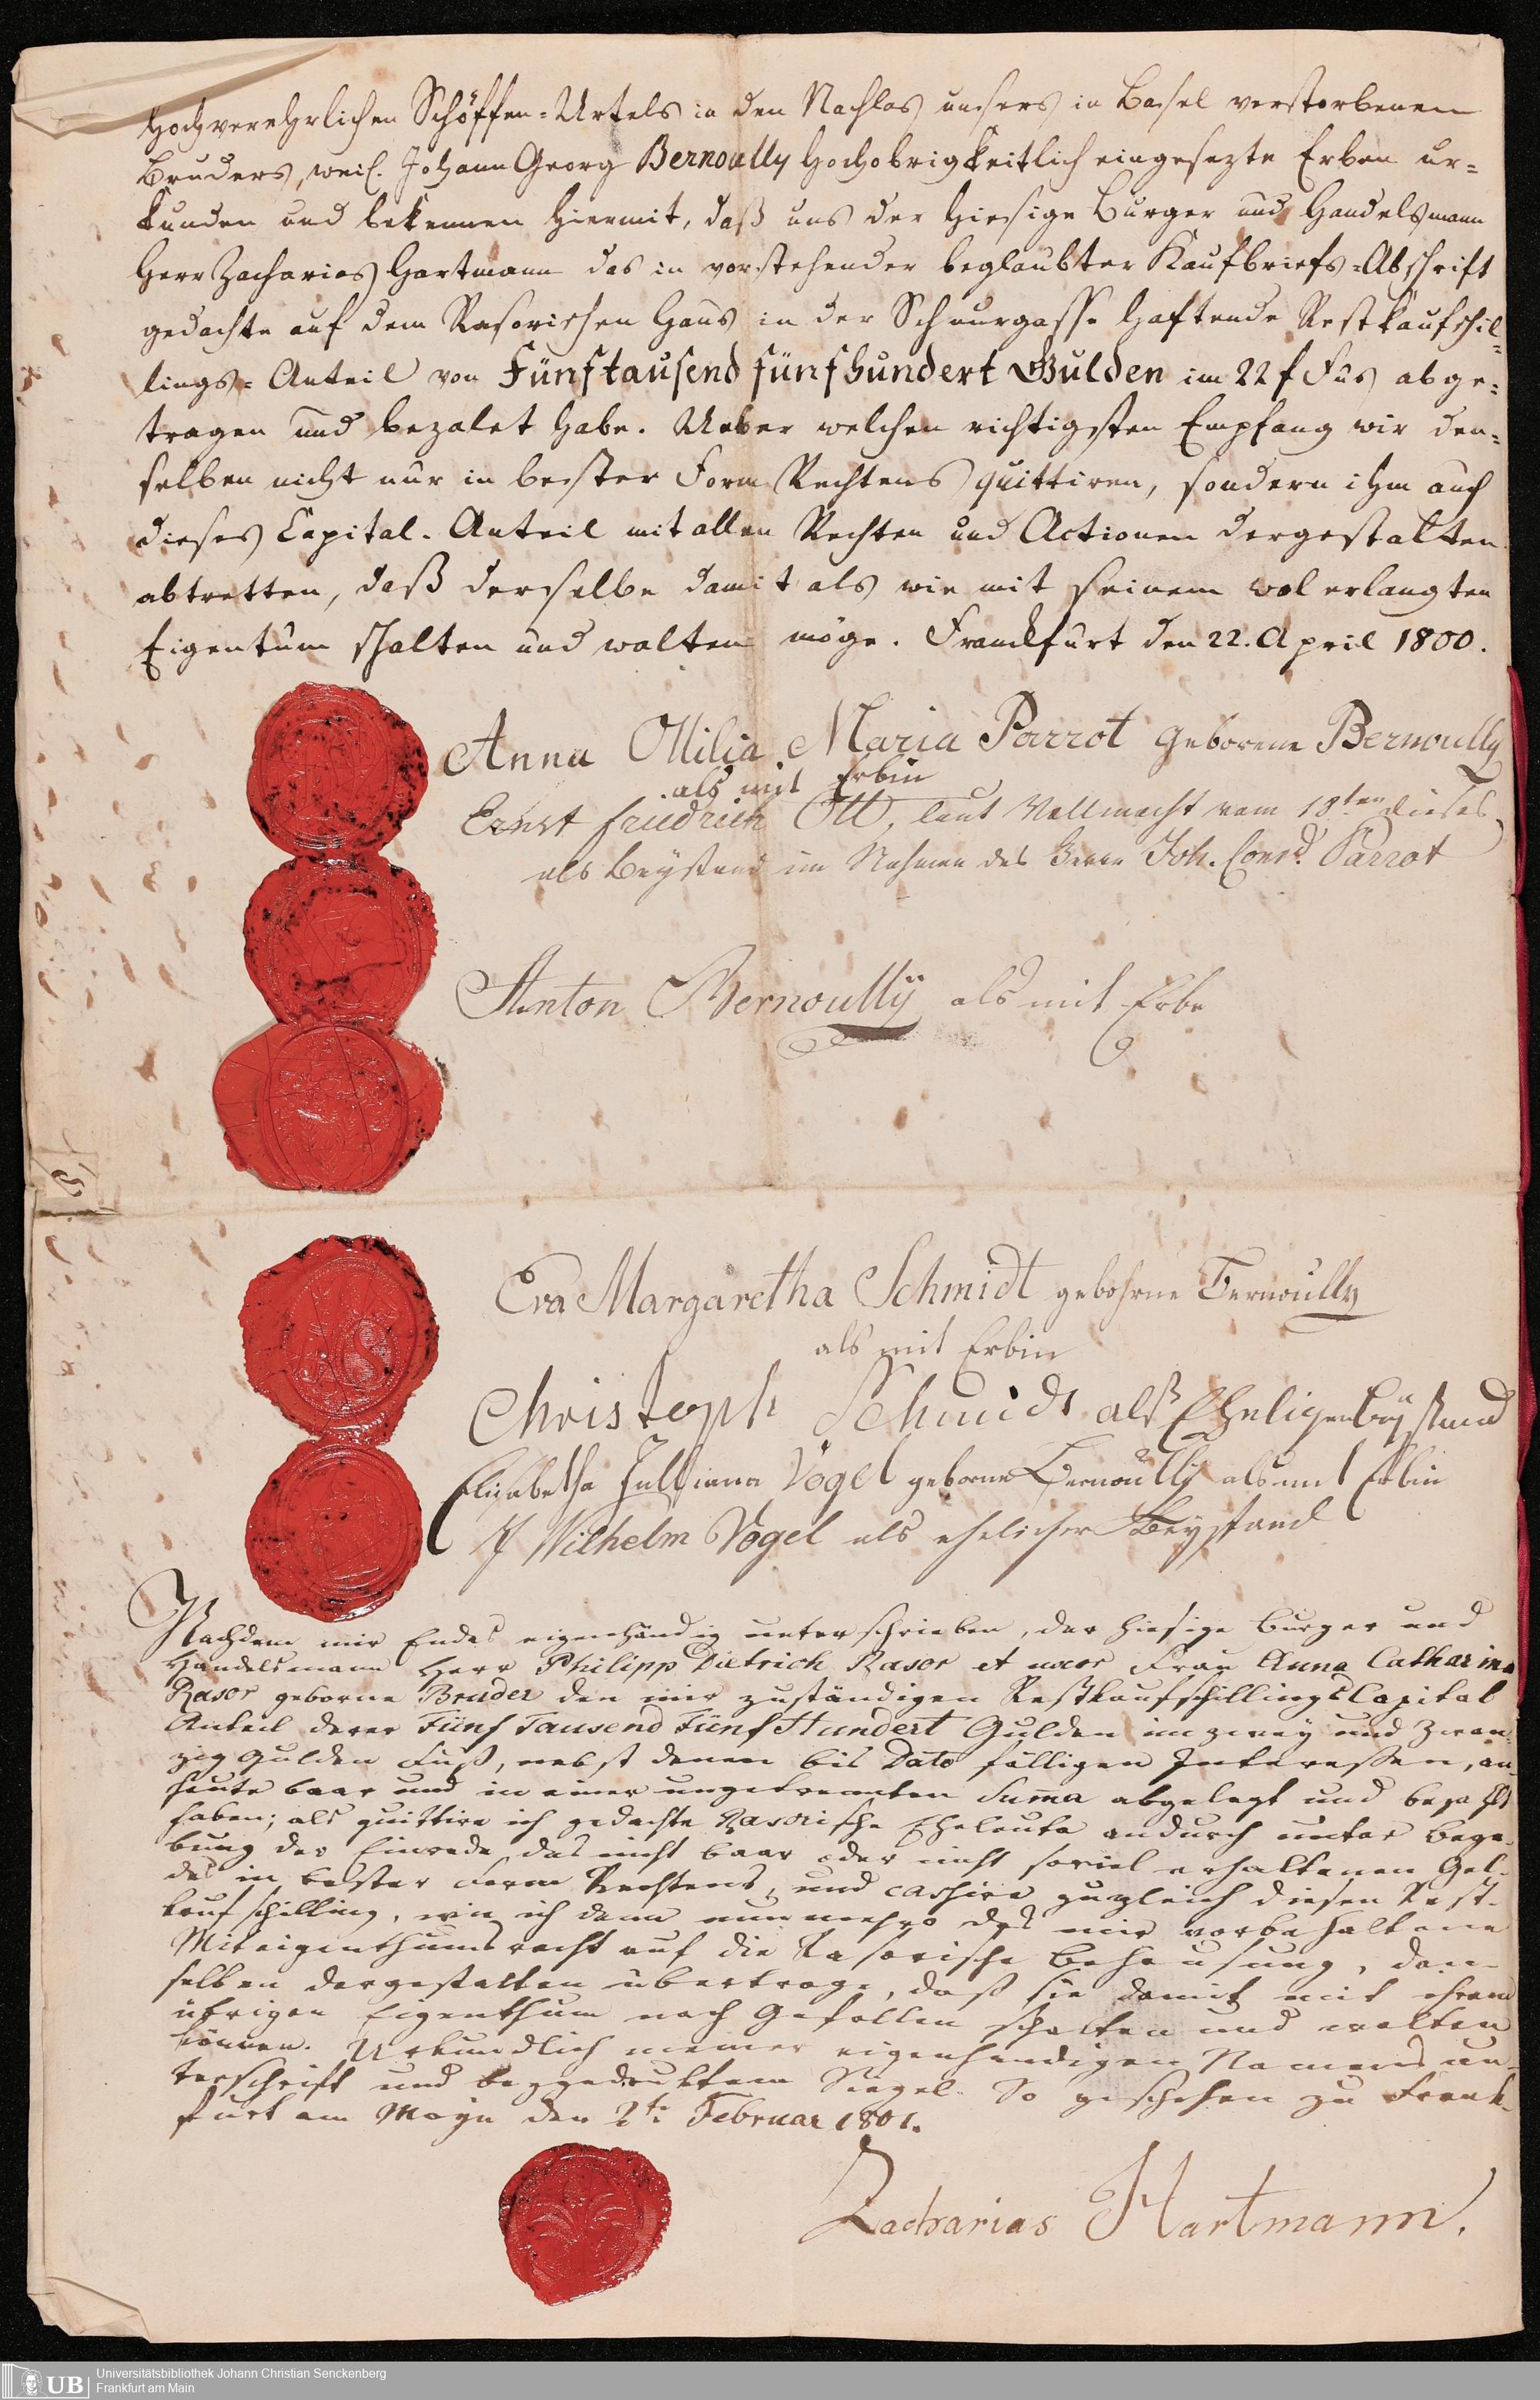 Hochverehrlichen Schöffen=Urtels in den Nachlas unsers in Basel verstorbenen
Bruders, weil. Johann Georg Bernoully Hochobrigkeitlich eingesezte Erben ur=
kunden und bekennen hiermit, daß uns der hiesige Burger und Handelsmann
Herr Zacharias Hartmann das in vorstehender beglaubter Kaufbriefs=Abschrift
gedachte auf dem Rasorischen Haus in der Schnurgasse haftende Restkaufschil=
lings=Anteil von Fünftausend fünfhundert Gulden im 22 f Fus abge=
tragen und bezalet habe. Ueber welchen richtigsten Empfang wir den=
selben nicht nur in bester Form Rechtens quittiren, sondern ihm auch
dieses Capital-Anteil mit allen Rechten und Actionen dergestalten
abtretten, daß derselbe damit als wie mit seinem wol erlangten
Eigentum schalten und walten möge. Franckfurt den 22. April 1800.
Anna Ottilia Maria Parrot geborene Bernoully
als mit Erbin
Ernst friedrich Ott, laut Vollmacht vom 18ten dieses,
als Beystand im Nahmen des Herrn Joh. Conrd. Parrot
Anton Bernoully als mit Erbe
Eva Margaretha Schmidt gebohrne Bernoully
als mit Erbin
Christoph Schmidt alß Eheligen beystand
Elisabetha Julliana Vogel geborne Bernoully als mit Erbin
Wilhelm Vogel als ehelicher Beystand
Nachdem mir Endes eigenhändig unterschrieben, der hiesige Burger und
Handelsmann Herr Philipp Dietrich Rasor et uxor Frau Anna Catharina
Rasor geborne Bruder den mir zuständigen Restkaufschillings Capital
Anteil derer Fünf Tausend Fünf Hundert Gulden im zwey und Zwan-
zig Gulden Fuß, nebst denen bis Dato fälligen Interessen, an-
heute baar und in einer ungetrennten Summa abgelegt und bezahlt
haben; als quittire ich gedachte Rasorische Eheleute andurch unter bege-
bung der Einrede, das nicht baar oder nicht soviel erhaltenen Gel-
des in bester Form Rechtens, und cassire zugleich diesen Rest-
kaufschilling, wie ich dann nunmehro das mir vorbehaltene
Miteigenthumsrecht auf die Rasorische Behausung, den-
selben dergestalten übertrage, daß sie damit mit ihrem
übrigen Eigenthum nach Gefallen schalten und walten
können. Urkundlich meiner eigenhändigen Namens un-
terschrift und beygedruktem Siegel. So geschehen zu Frank-
furt am Mayn den 2ten Februar 1801.
Zacharias Hartmann.
UB
Universitätsbibliothek Johann Christian Senckenberg
Frankfurt am Main